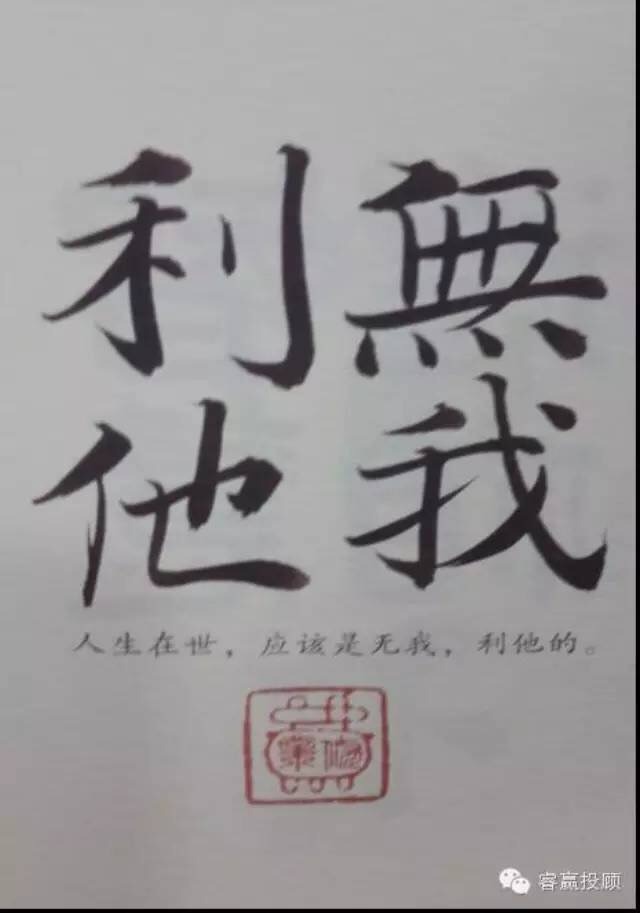 無我
利他
人生在世，应该是无我，利他的。
睿赢投顾